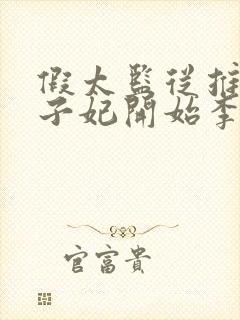 假太監從推
子妃開始李
官富貴